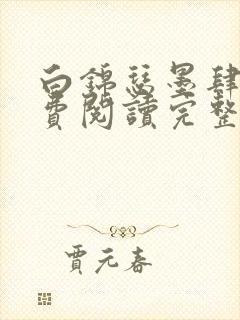 白錦瑟墨肆
費閱讀完整
賈元春